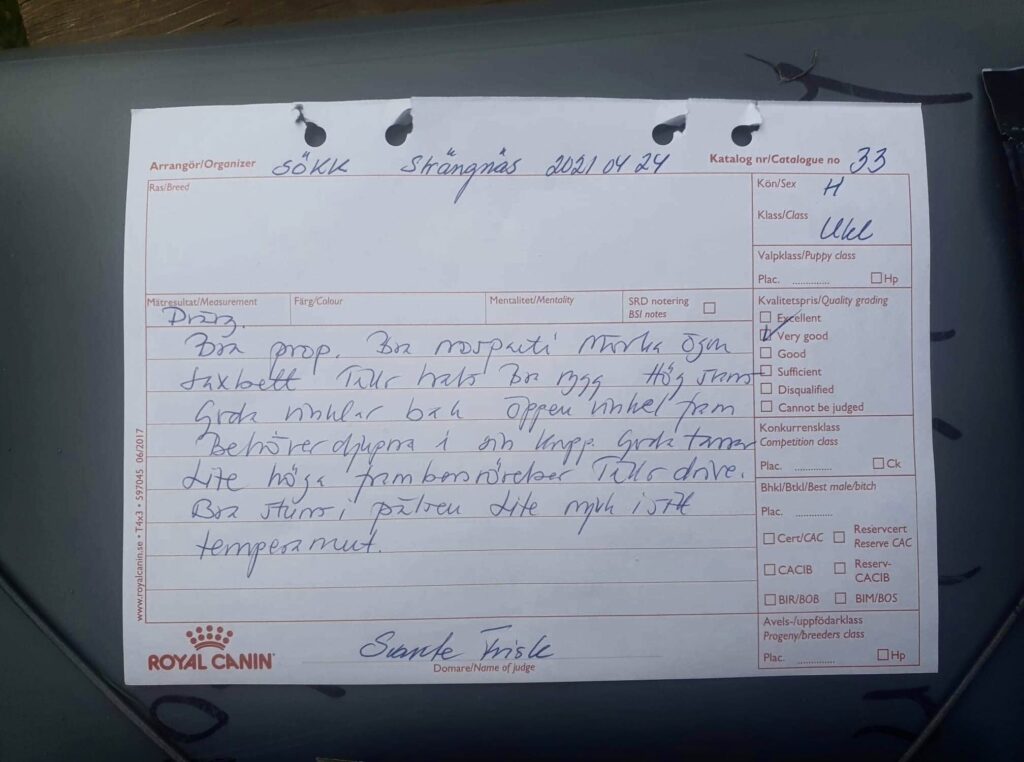 Arrangör/Organizer SÖKK Strängnäs 2021 04 24 Katalog nr/Catalogue no 33
Ras/Breed
Kön/Sex H
Klass/Class Ukl
Valpklass/Puppy class
Plac. .............. Hp
Mätresultat/Measurement Färg/Colour Mentalitet/Mentality SRD notering
BSI notes
Kvalitetspris/Quality grading
Excellent
Very good
Good
Sufficient
Disqualified
Cannot be judged
Bra prop. Bra Mörka ögon
Saxbett Tillr hals Bra rygg Hög svans
Goda vinklar bak Öppen vinkel fram
Behöver djupna i sin kropp. Goda tassar
Lite höga frambensrörelser Tillr drive.
Bra i pälsen Lite mjuk i sitt
temperament.
Konkurrensklass
Competition class
Plac. .............. Ck
Bhkl/Btkl/Best male/bitch
Plac. ..............
Cert/CAC Reservcert
Reserve CAC
CACIB Reserv-
CACIB
BIR/BOB BIM/BOS
Avels-/uppfödarklass
Progeny/breeders class
Plac. .............. Hp
www.royalcanin.se • T4x3 • S97045 06/2017
ROYAL CANIN
Svante Frisk
Domare/Name of judge